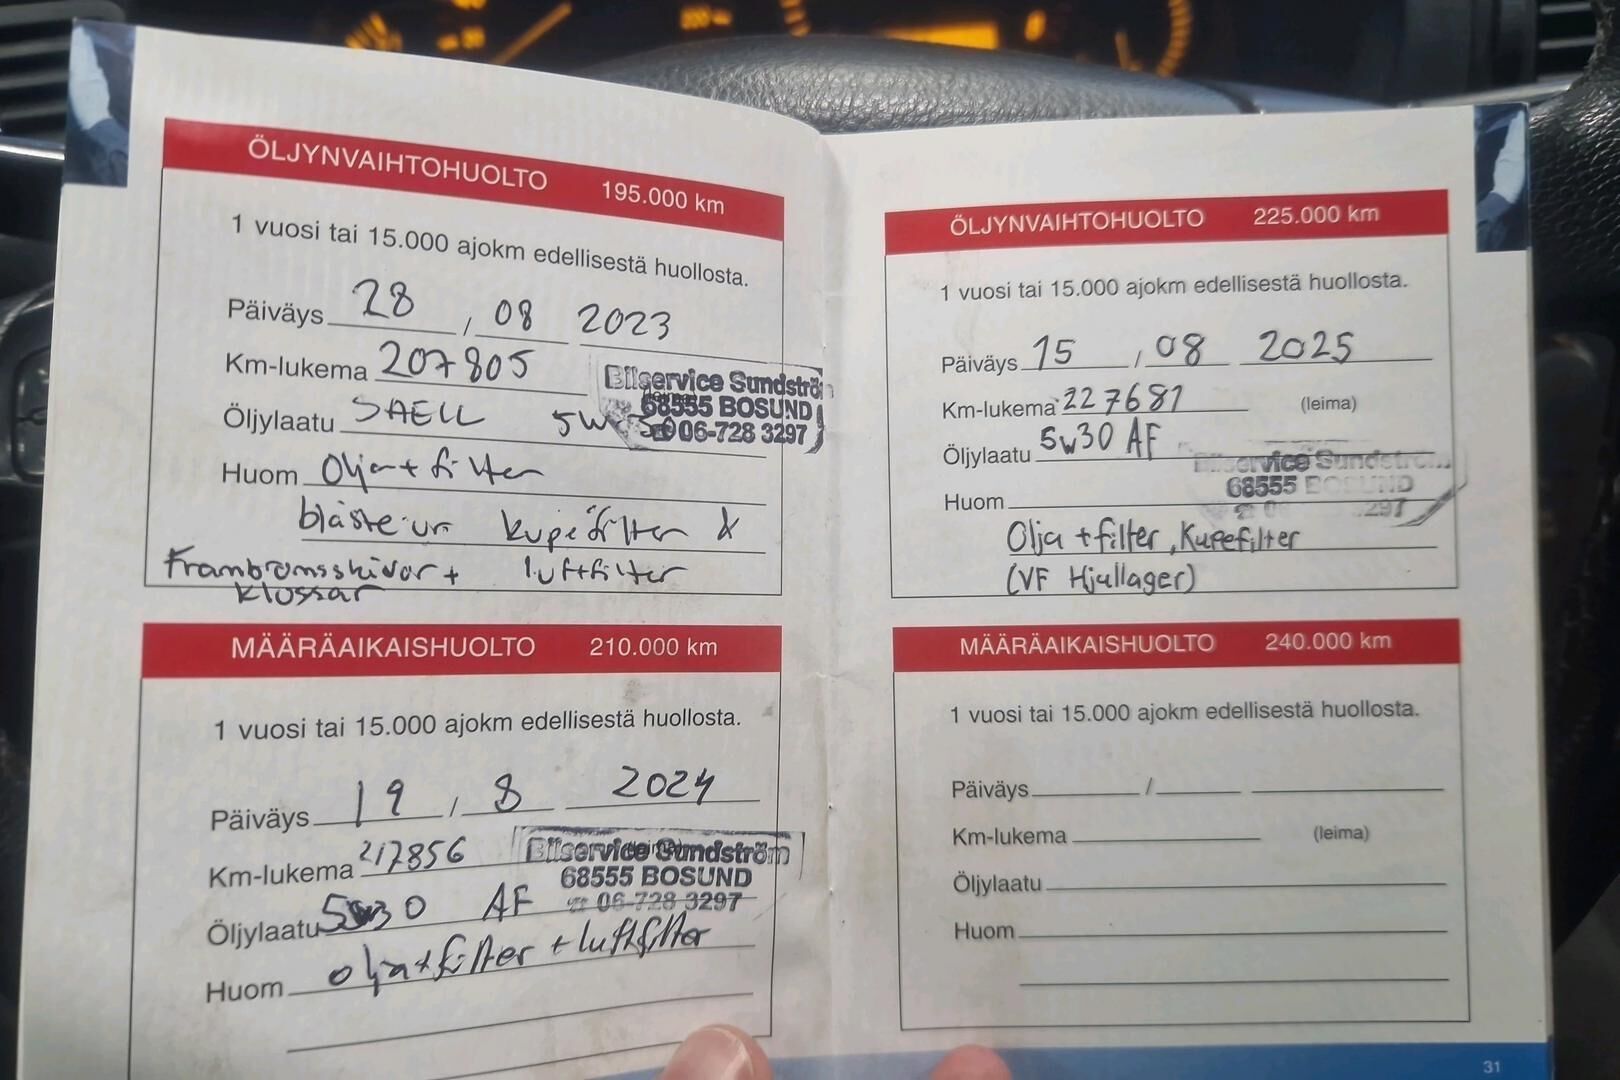 ÖLJYNVAIHTOHUOLTO 195.000 km
1 vuosi tai 15.000 ajokm edellisestä huollosta.
Päiväys 28 , 08 2023
Km-lukema 207805
Öljylaatu SHELL 5W30
Bilservice Sundström
68555 BOSUND
☎ 06-728 3297
Huom Olja + filter
blåste ur kupefilter &
Frambromsskivor + luftfilter
klossar
MÄÄRÄAIKAISHUOLTO 210.000 km
1 vuosi tai 15.000 ajokm edellisestä huollosta.
Päiväys 19 , 8 2024
Km-lukema 217856
Bilservice Sundström
68555 BOSUND
☎ 06-728 3297
Öljylaatu 5W30 AF
Huom olja + filter + luftfilter
ÖLJYNVAIHTOHUOLTO 225.000 km
1 vuosi tai 15.000 ajokm edellisestä huollosta.
Päiväys 15 , 08 2025
Km-lukema 227681 (leima)
Öljylaatu 5W30 AF
Bilservice Sundström
68555 BOSUND
Huom
Olja + filter, Kupefilter
(VF Hjullager)
MÄÄRÄAIKAISHUOLTO 240.000 km
1 vuosi tai 15.000 ajokm edellisestä huollosta.
Päiväys /
Km-lukema (leima)
Öljylaatu
Huom
31